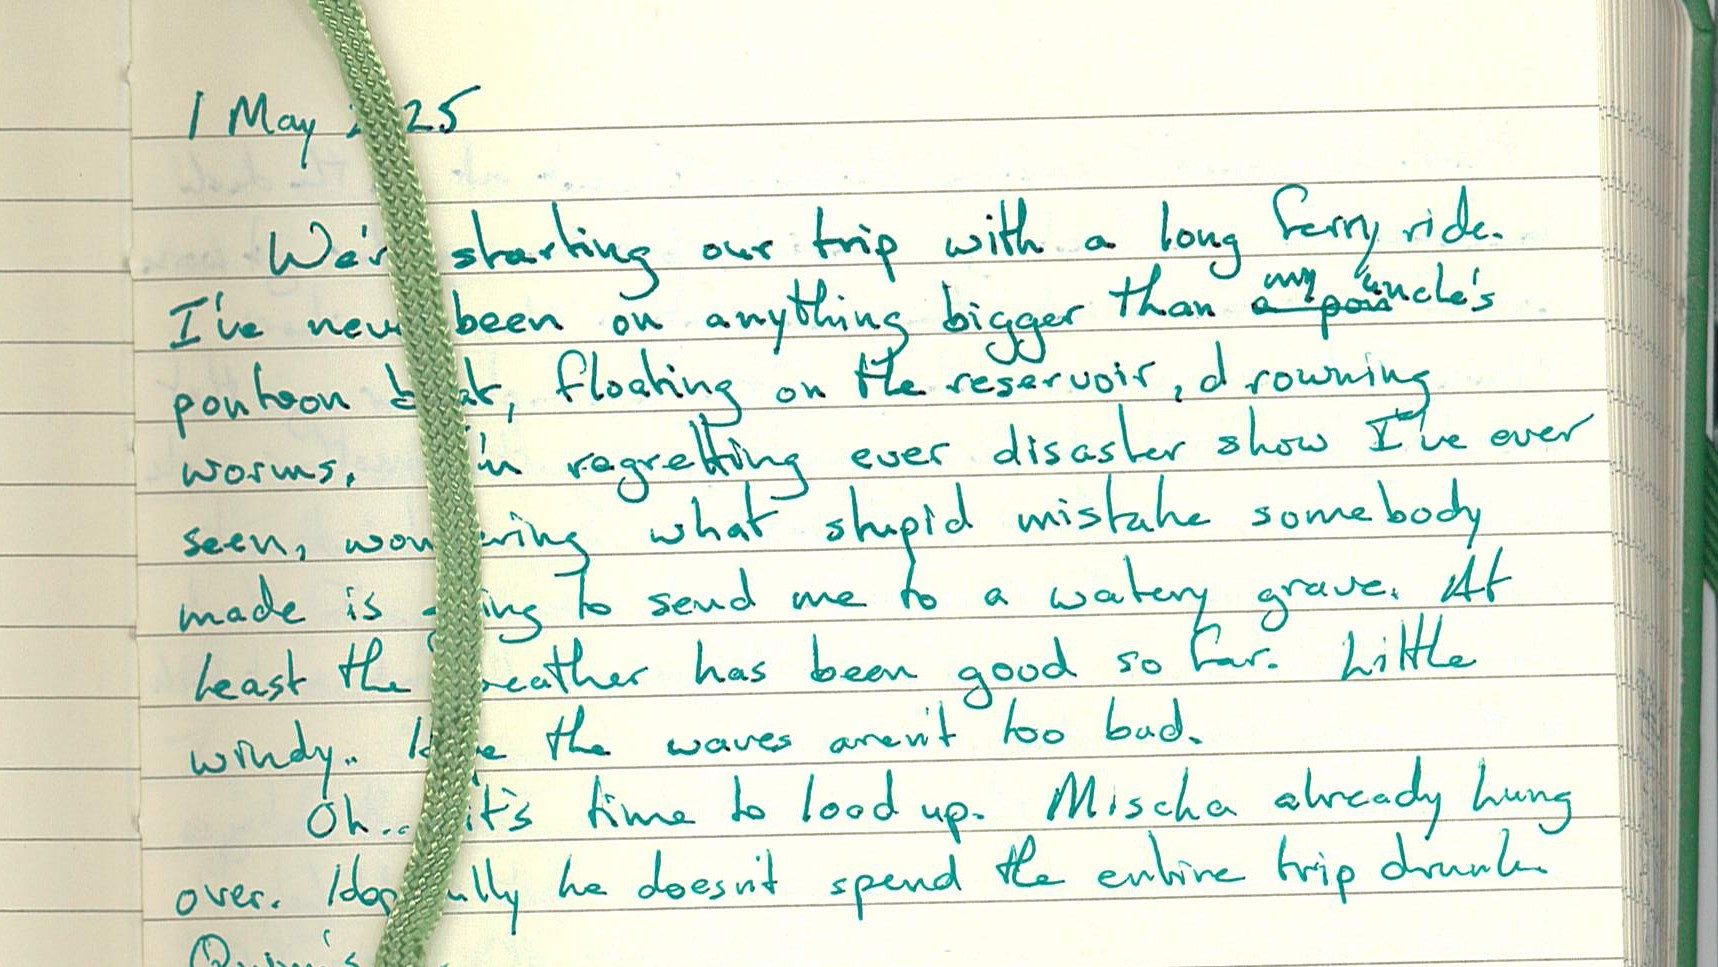 1 May 2025
We're starting our trip with a long ferry ride.
I've never been on anything bigger than my uncle's
pontoon boat, floating on the reservoir, drowning
worms. I'm regretting ever disaster show I've ever
seen, wondering what stupid mistake somebody
made is going to send me to a watery grave. At
least the weather has been good so far. Little
windy.. Hope the waves aren't too bad.
Oh... it's time to load up. Mischa already hung
over. Hopefully he doesn't spend the entire trip drunk.